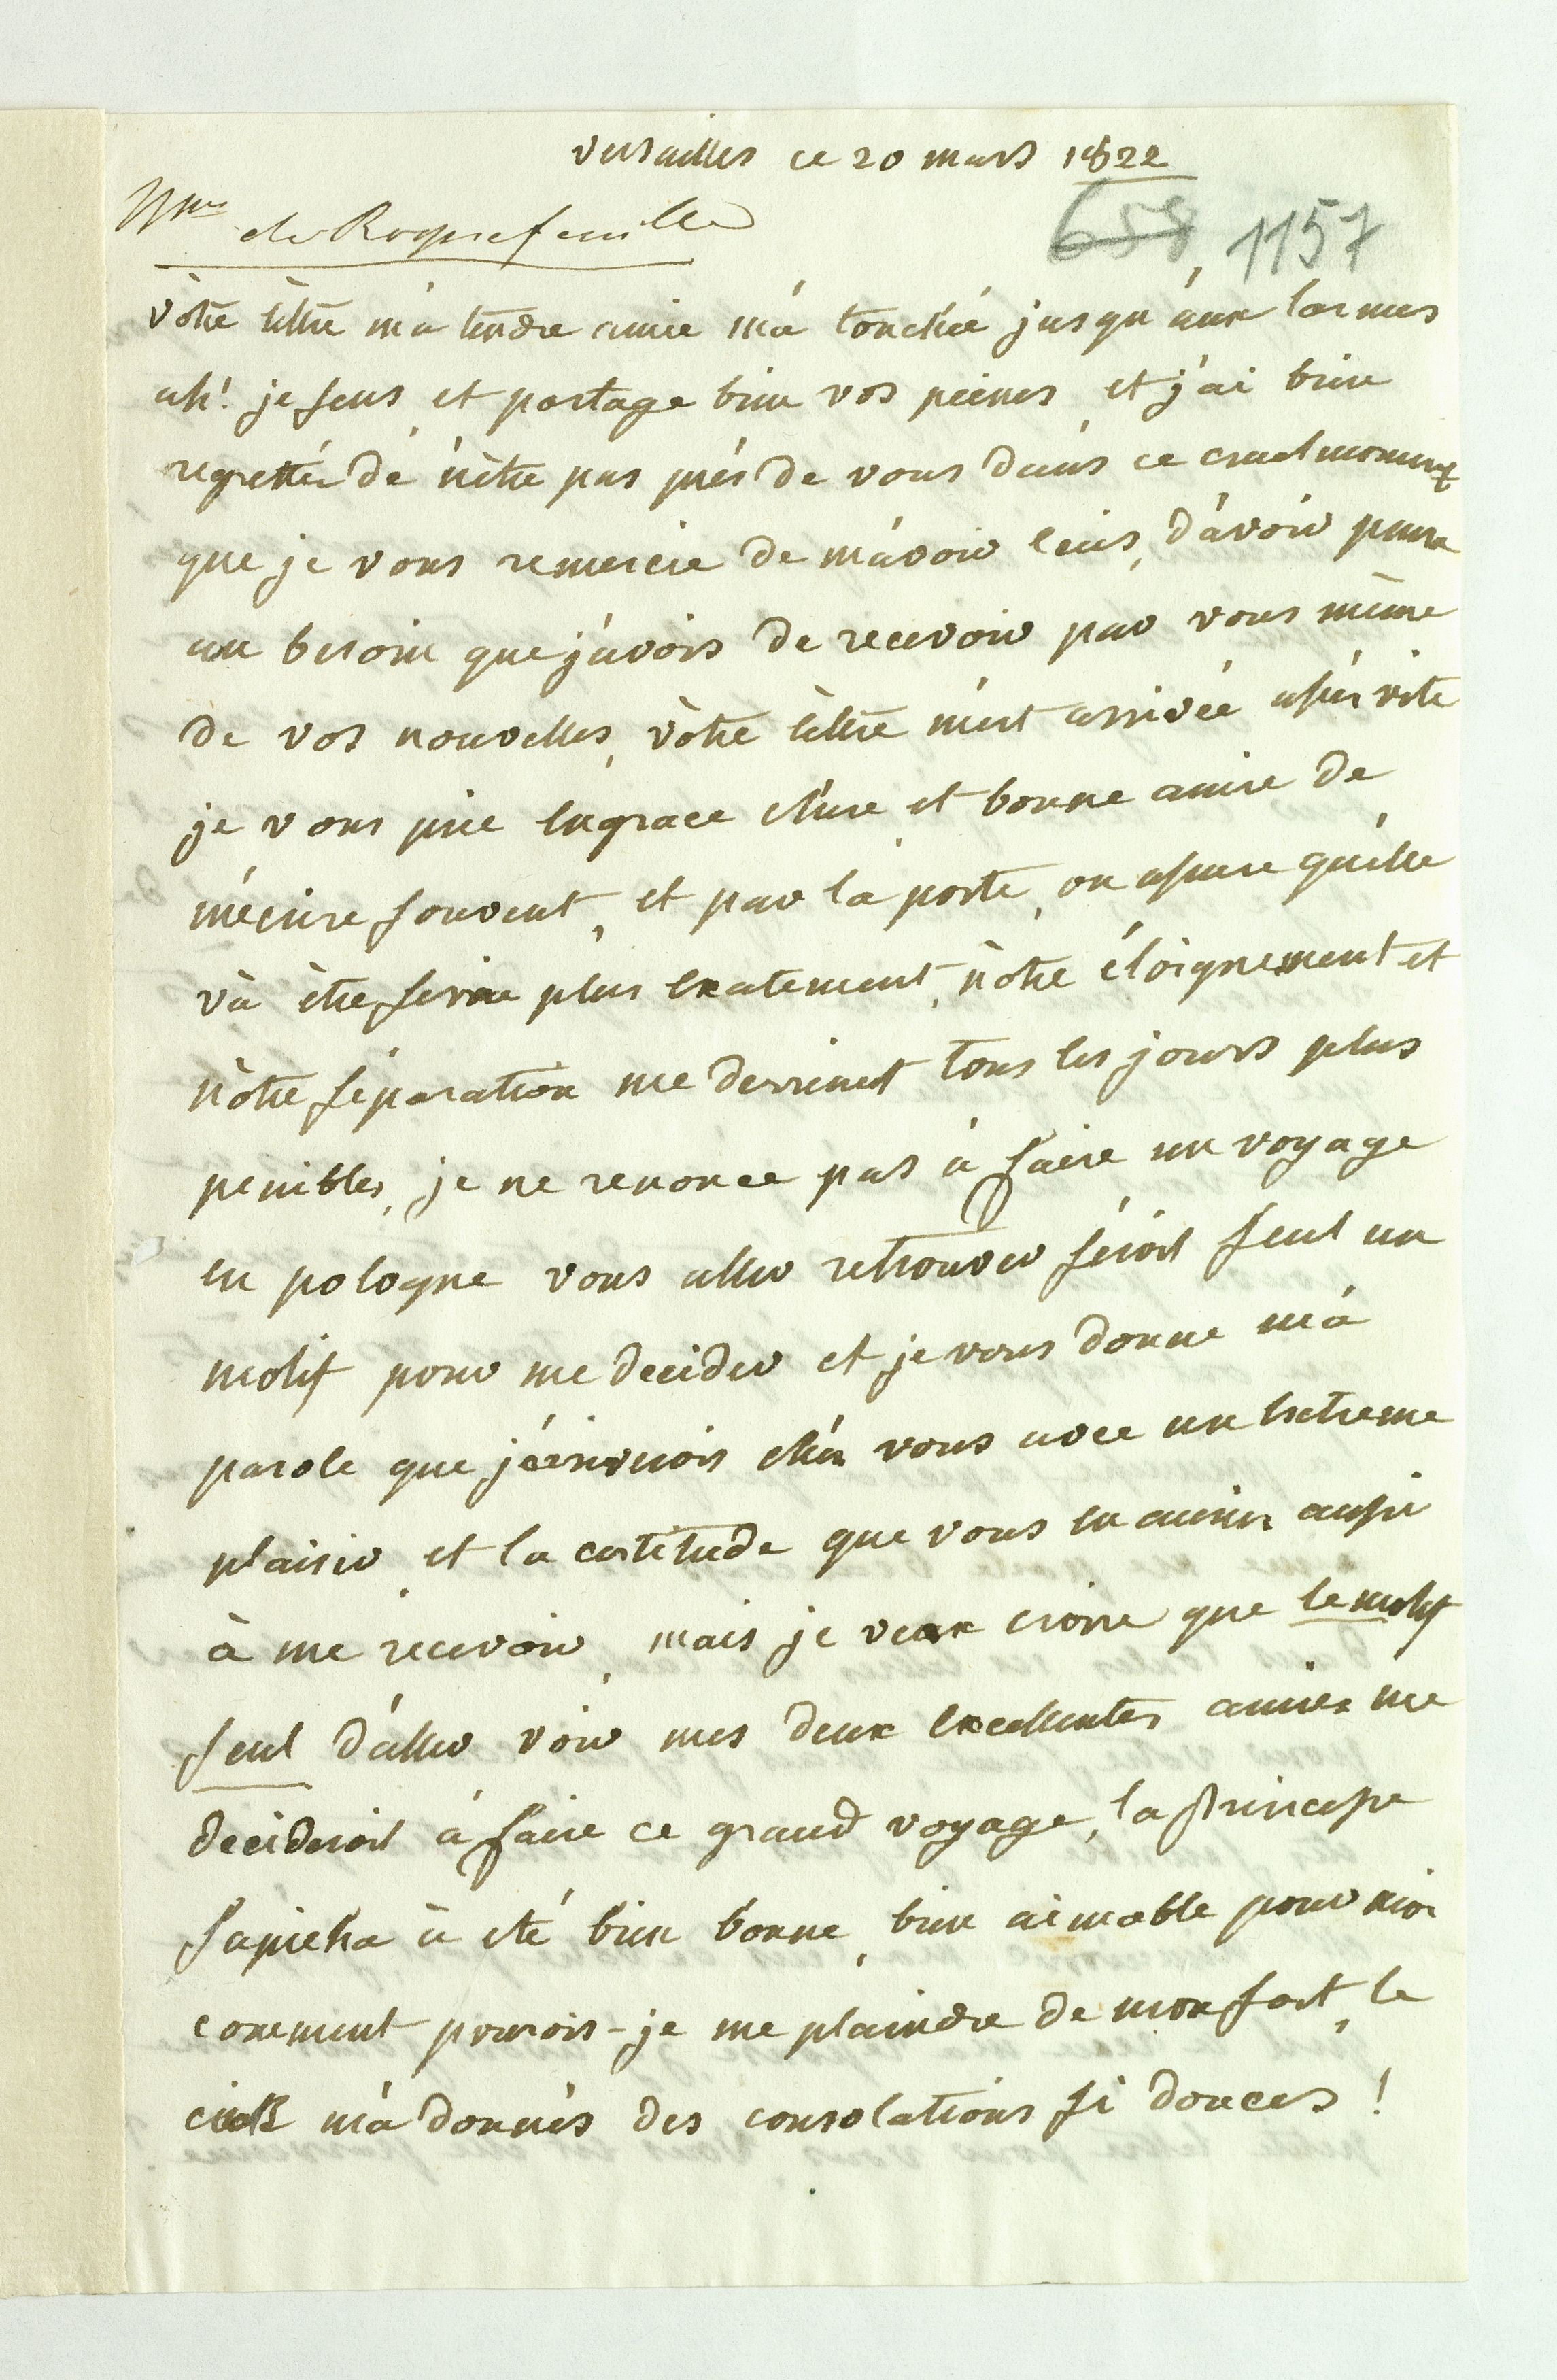 versailles ce 20 mars 1822
Mme de Roquefeuille
658, 1157
vôtre lèttre mà tendre amie m'à touchée jusqu'àux larmes
ah! je sens et partage bien vos peines et j'ai bien
regrettée de n'être pas près de vous dàns ce cruel moment
que je vous remercie de m'àvoir écris, d'àvoir pensé
au besoin que j'àvois de recevoir par vous mème
de vos nouvelles, vôtre lèttre m'est arrivée assés vite
je vous prie en grace chere et bonne amie de
m'écrire souvent, et par là poste, on assure qu'èlle
và être servie plus exatement, nôtre éloignement et
nôtre séparation me devienent tous les jours plus
penibles, je ne renonce pas à faire un voyage
en pologne vous aller retrouver séroit seul un
motif pour me decider et je vous donne mà
parole que j'àrriverois chés vous avec un extreme
plaisir et la certitude que vous en auriés aussi
à me recevoir, mais je veux croire que le motif
seul d'àller voir mes deux excellentes amies me
decideroit à faire ce grand voyage, la Princesse
Sapieha à eté bien bonne, bien aimable pour moi
comment pourois-je me plaindre de mon sort, le
ciel m'à donnés des consolations si douces!